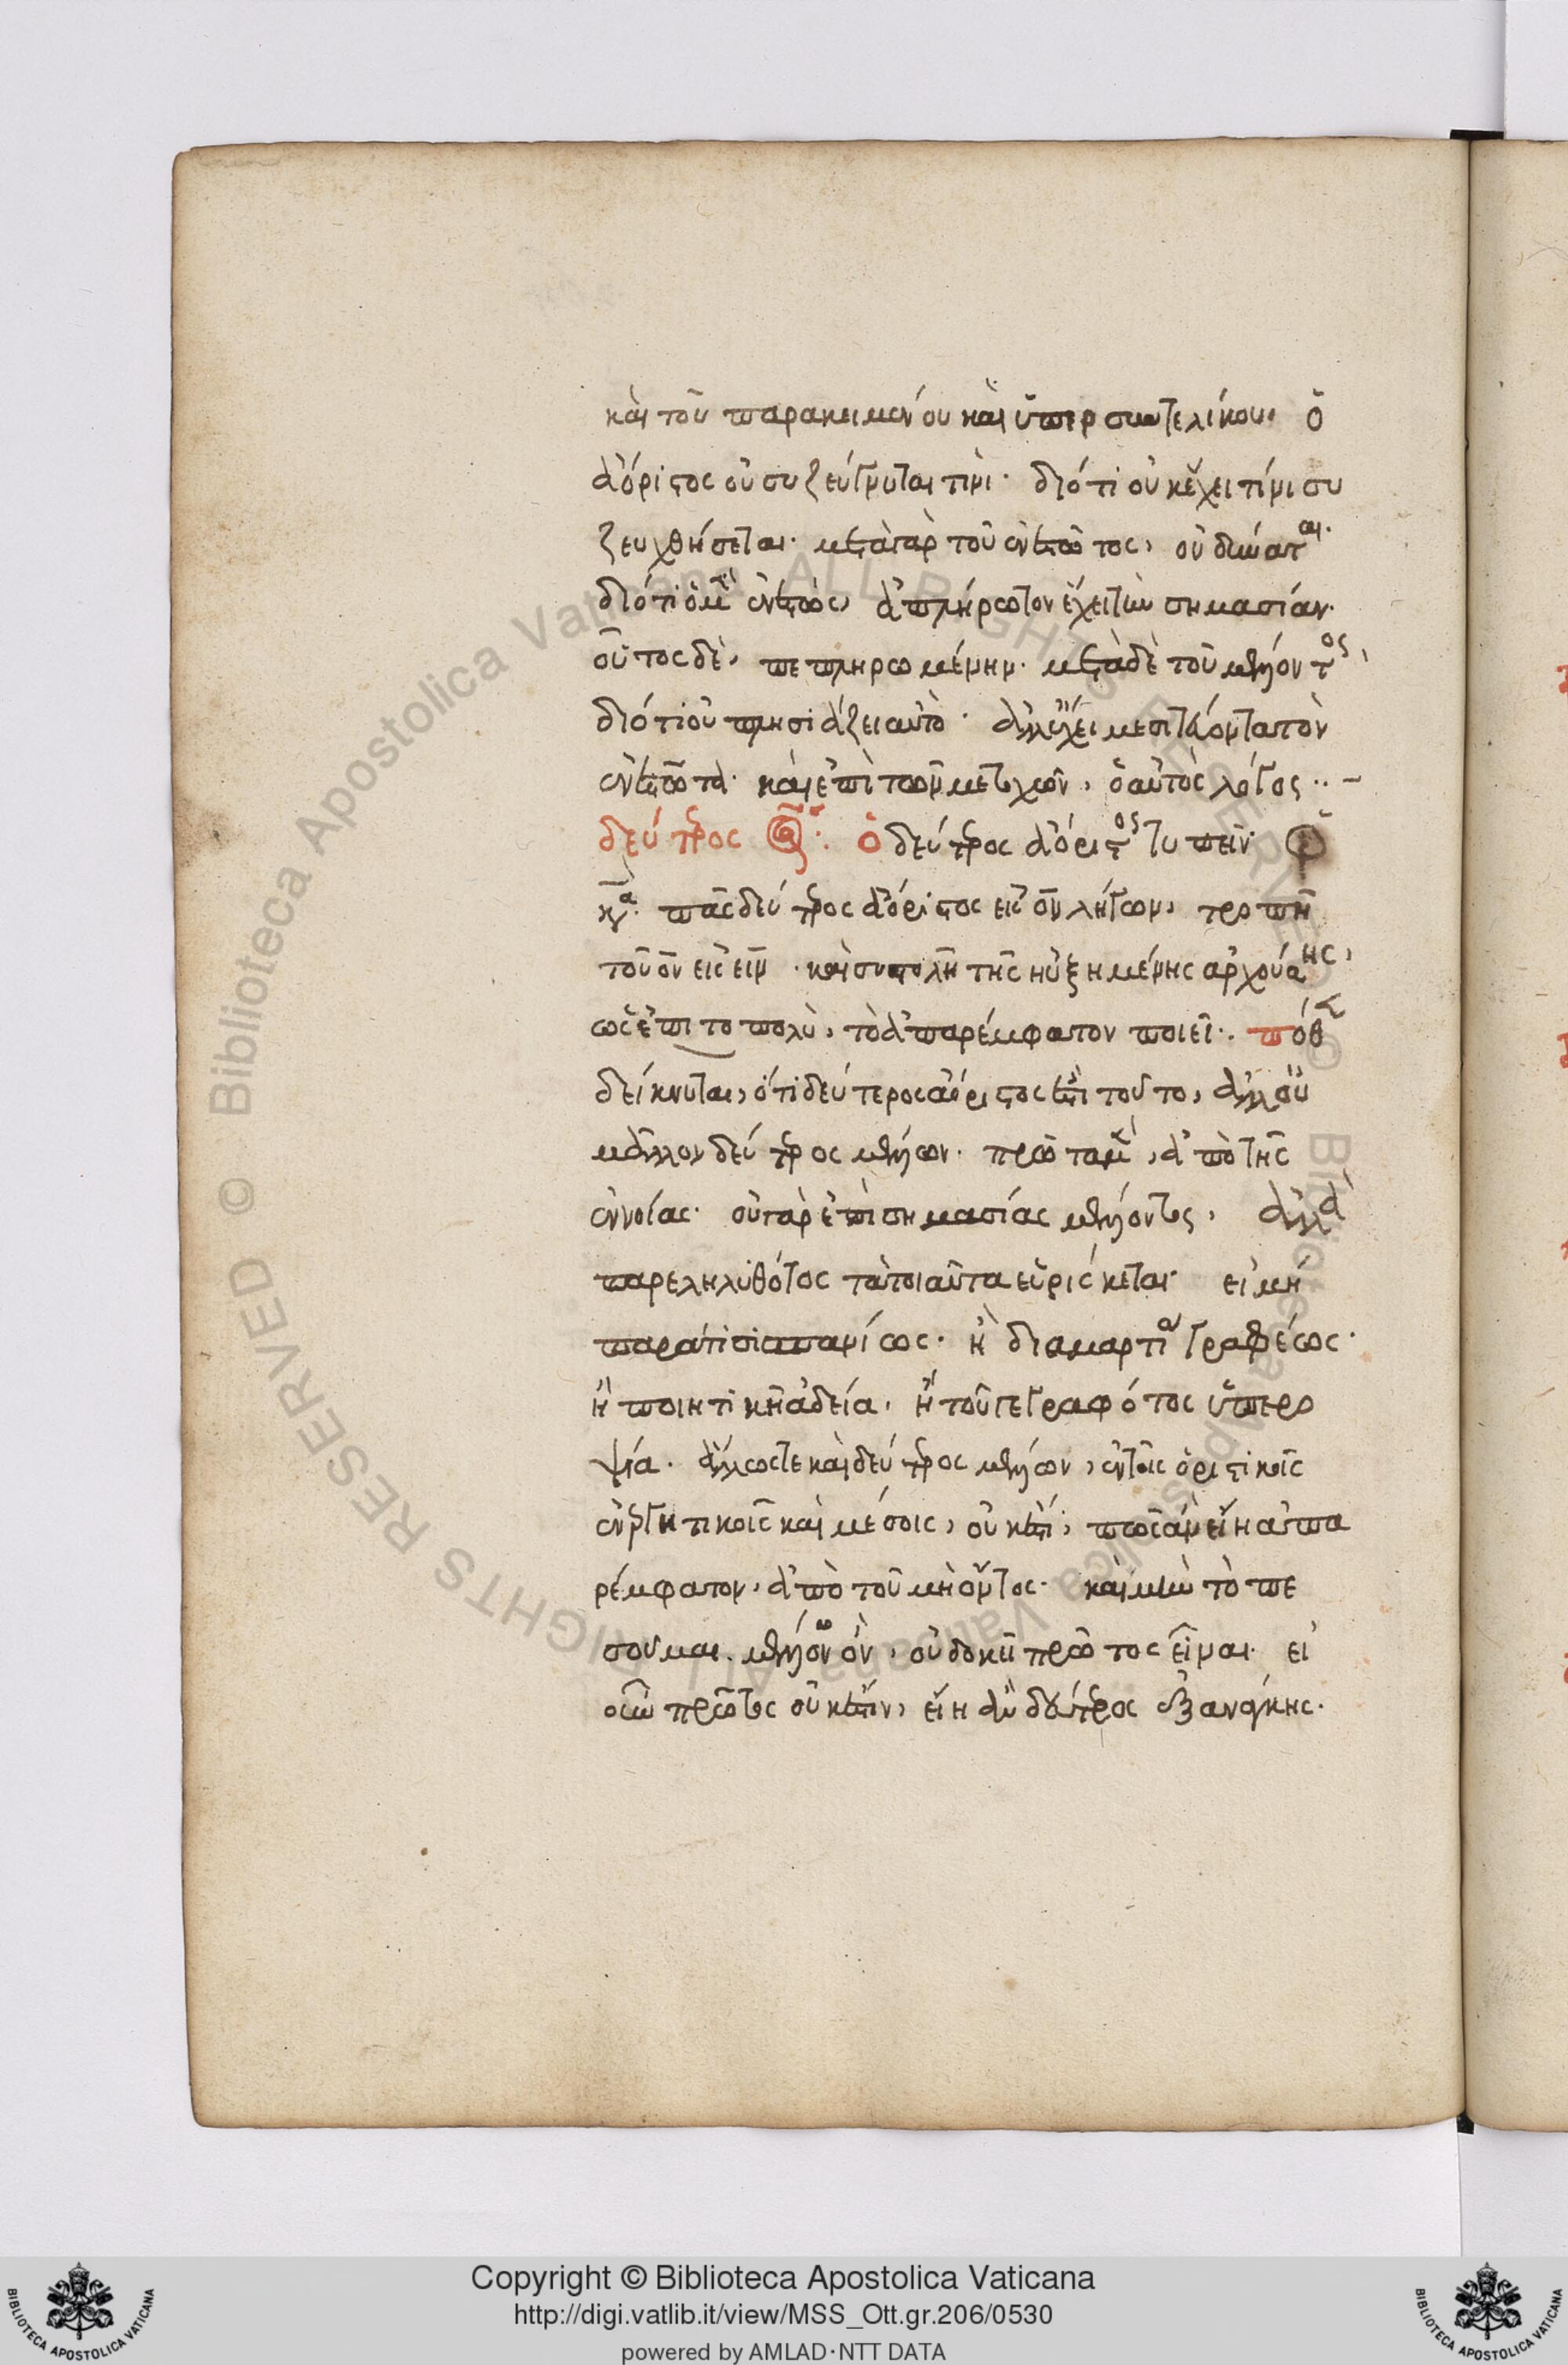 καὶ τοῦ παρακειμένου καὶ ὑπερσυντελίκου· ὁ
ἀόριστος οὐ συζεύγνυται τινὶ· διότι οὐκ ἔχει τίνι συ
ζευχθήσεται· μετὰ γὰρ τοῦ ἐνεστῶτος, οὐ δύναται·
διότι ὁ μὲν ἐνεστὼς, ἀπλήρωτον ἔχει τὴν σημασίαν·
οὗτος δὲ, πεπληρωμένην· μετὰ δὲ τοῦ μέλλοντος,
διότι οὐ πλησιάζει αὐτῷ· ἀλλ' ἔχει μεσιτεύοντα τὸν
ἐνεστῶτα· καὶ ἐπὶ τῶν μετοχῶν, ὁ αὐτὸς λόγος··–
δεύτερος ὁ δεύτερος ἀόριστος τυπεῖν·
πᾶς δεύτερος ἀόριστος εἰς ον λήγων, τροπῇ
τοῦ ον εἰς εῖν· καὶ συστολῇ τῆς ηὐξημένης ἀρχούσης,
ὡς ἐπιτοπολὺ, τὸ ἀπαρέμφατον ποιεῖ·. πόθεν
δείκνυται, ὅτι δεύτερος ἀόριστος ἐστὶ τοῦτο, ἀλλ' οὐ
μᾶλλον δεύτερος μέλλων· πρῶτα μὲν, ἀπὸ τῆς
ἐννοίας· οὐ γὰρ ἐπὶ σημασίας μέλλοντος, ἀλλὰ
παρεληλυθότος τὰ τοιαῦτα εὑρίσκεται· εἰ μὴ
παρά τισι σπανίως· ἢ διαμαρτίᾳ γραφέως·
ἢ ποιητικῇ ἀδείᾳ, ἢ τοῦ γεγραφότος ὑπερο
ψία. ἄλλως τε καὶ δεύτερος μέλλων, ἐν τοῖς ὁριστικοῖς
ἐνεργητικοῖς καὶ μέσοις, οὐκ ἔστι· πῶς ἂν εἴη ἀπα
ρέμφατον, ἀπὸ τοῦ μὴ ὄντος· καὶ μὴν τὸ πε
σοῦμαι. μέλλων ὂν, οὐ δοκεῖ πρῶτος εἶναι· εἰ
οὖν πρῶτος οὐκ ἔστιν, εἴη ἂν δεύτερος ἐξανάγκης·
Copyright © Biblioteca Apostolica Vaticana
http://digi.vatlib.it/view/MSS_Ott.gr.206/0530
powered by AMLAD·NTT DATA